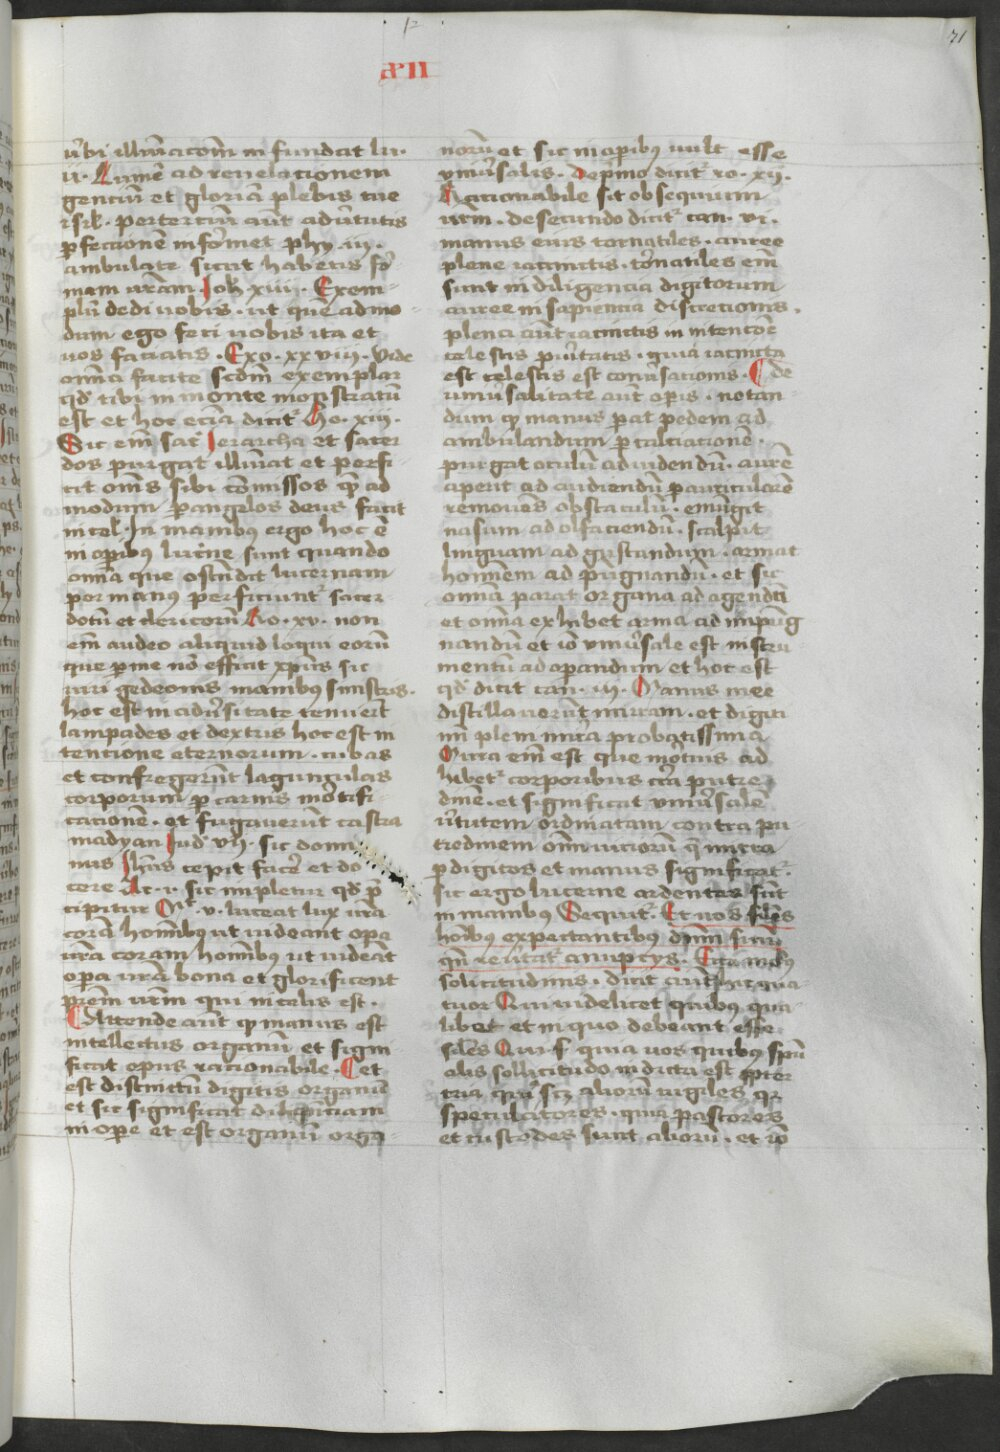 12
71
xii
v̄bi illūīacōm̄ infundat lu.
ii. Lumē ad reuelacionem
genciū et gloriā plebis tue
isrl̄. per terciū aūt ad v̄tutis
ꝑfectionē informet phy. iii.
ambulate sicut habetis for
mam nr̄am. Joh̄ xiii. Exem
plū dedi uobis. ut quē admo
dum ego feci uobis ita et
uos faciatis. Exo. xxviii. Vide
om̄ia facite scd̄m exemplar
qd̄ tibi in monte monstratū
est et hoc ecia dicit᷑ . xiii.
Sic em̄ sac̄ Jerarcha et sacer
dos purgat illūīat et perfi
cit om̄s sibi cōmissos quē ad
modum ꝑ angelos deus facit
in cel̄. In manibꝯ ergo hoc ē
in oꝑibꝯ lucerne sunt quando
om̄ia que ostēdit lucernam
per manꝯ perficiunt᷑ sacer
dotū et clericorū Ro. xv. non
em̄ audeo aliquid loqui eorū
que ꝑ me nō efficit xp̄us sic
uiri gedeonis manibꝯ sinistris.
hoc est in aduersitate tenuerūt
lampades et dextris hoc est in
tencione eternorum. tubas
et confregerūt lagunculas
corporum ꝑ carnis mortifi
cacionē. et fugauerūt castra
madyan Jud̄ vii. sic domi
nus Jhūs cepit facere et do
cere Ac. i. sic impletur qd̄ p̄
cipitur Mt̄. v. luceat lux vr̄a
corā hominibꝯ ut uideant opa
vr̄a coram hominibꝯ ut uideāt
opera vr̄a bona et glorificent
prēm vr̄m qui in celis est.
Attende aūt qꝫ manus est
intellectus organū et signi
ficat opus racionabile. et
est distinctū digitis organū
et sic significat diligenciam
in oꝑe et est organū orga
norū et sic in oꝑibꝯ uult esse
vniuersalis. De primo dicit᷑ ro. xii.
Racionabile sit obsequium
vr̄m. de secundo dicit᷑ can. v.
manus eius tornatiles. auree
plene iacinctis. tornatiles em̄
sunt in diligencia digitorum
auree in sapiencia discrecionis.
plena aūt iacinctis in intencōe
celestis puritatis. quia iacincta
est celestis est conuersacionis. De
vniuersalitate aūt oꝑis. notan
dum qꝫ manus parat pedem ad
ambulandum ꝑ calciacionē.
purgat oculū ad uidendū. aurē
aperit ad audiendū ꝑ auricularē
remouēs obstaculū. emūgit
nasum ad olfaciendū. scalpit
linguam ad gustandum. armat
hominem ad pugnandū. et sic
om̄ia parat organa ad agendū
et om̄ia exhibet arma ad impug
nandū et io vniuersale est instru
mentū ad oꝑandum et hoc est
qd̄ dicit can. v. Manus mee
distillauerūt mirram. et digiti
mi pleni mirra probatissima
Mirra em̄ est que mortuis ad
hibet᷑ corporibus cōtra putre
dinē. et significat vniuersalē
v̄tutem ordinatam contra pu
tredinem om̄i uiciorū qꝫ mirra
ꝑ digitos et manus significat᷑.
sic ergo lucerne ardentes sūt
in manibꝯ Sequit᷑. Et uos siles
hoībꝯ expectantibꝯ dn̄m suum
qn̄ reūtat᷑ a nuptijs.
solicitudinis. dicit aūt hic qua
tuor Qui uidelicet quibꝯ qua
libet et in quo debeant esse
siles Qui s. quia uos quibꝯ spūi
alis sollicitudo indicta est ꝓpter
aliorū uigiles qꝫ
speculatores. quia pastores
et custodes sunt aliorū. et io